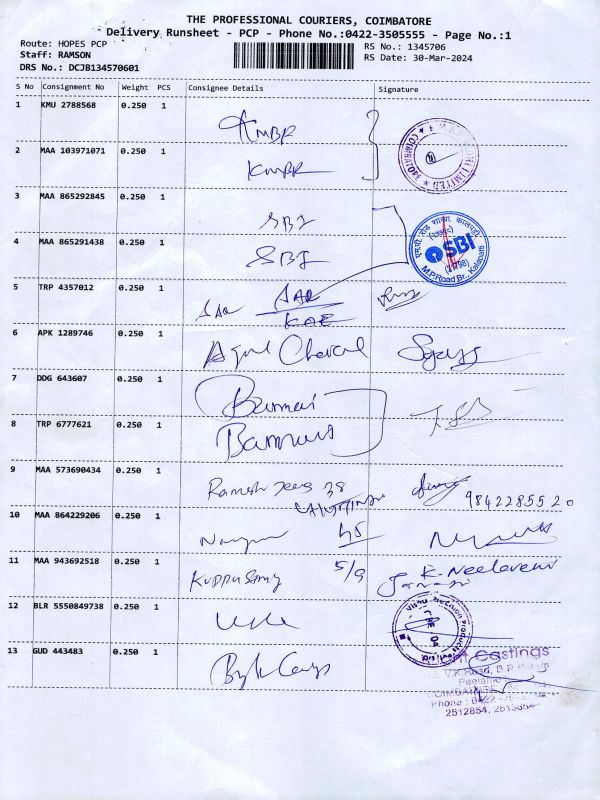 THE PROFESSIONAL COURIERS, COIMBATORE
Delivery Runsheet - PCP - Phone No.:0422-3505555 - Page No.:1
Route: HOPES PCP
RS No.: 1345706
Staff: RAMSON
RS Date: 30-Mar-2024
DRS No.: DCJB134570601
S No Consignment No Weight PCS Consignee Details Signature
1 KMU 2788568 0.250 1
KMBR
2 MAA 103971071 0.250 1
KMBR
3 MAA 865292845 0.250 1
SBI
4 MAA 865291438 0.250 1
SBI
SBI
M.P.Road Br., Kalapatti
5 TRP 4357012 0.250 1
6 APK 1289746 0.250 1
7 DDG 643607 0.250 1
Bannari
8 TRP 6777621 0.250 1
9 MAA 573690434 0.250 1
Ramesh 38
9842285520
10 MAA 864229206 0.250 1
45
11 MAA 943692518 0.250 1
Kuppusamy 5/9 K. Neelaveni
12 BLR 5550849738 0.250 1
13 GUD 443483 0.250 1
Castings
COIMBATORE
Phone : 0422
2512854,